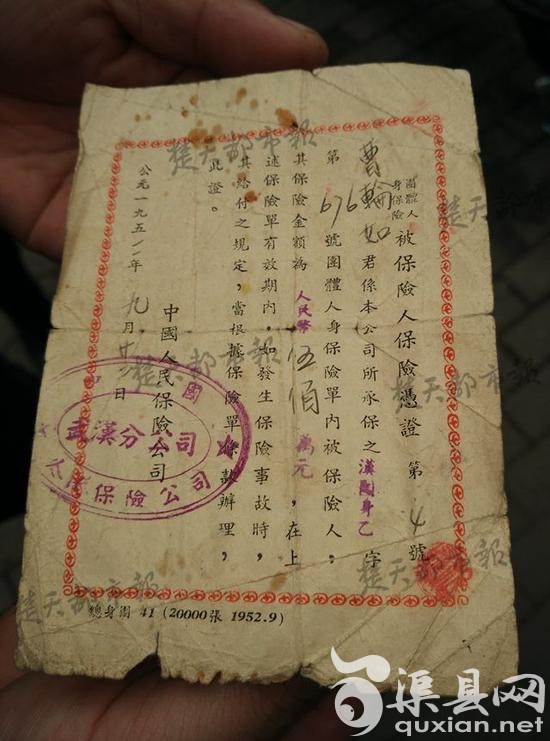 團體人身保險 被保險人保險憑證 第 4 號
曹輪如 君係本公司所承保之 漢團身乙 字
第 676 號團體人身保險單內被保險人，
其保險金額為 人民幣 伍佰 萬元，在上
述保險單有效期內，如發生保險事故時，
其給付之規定，當根據保險單條款辦理，
此證。
中國人民保險公司
公元一九五二年 九月 日
武漢分公司
保險公司
總身團 41 (20000張 1952.9)
楚天都市報
楚天都市報
楚天都市報
楚天都市報
楚天都市報
楚天都市報
渠县网
quxian.net